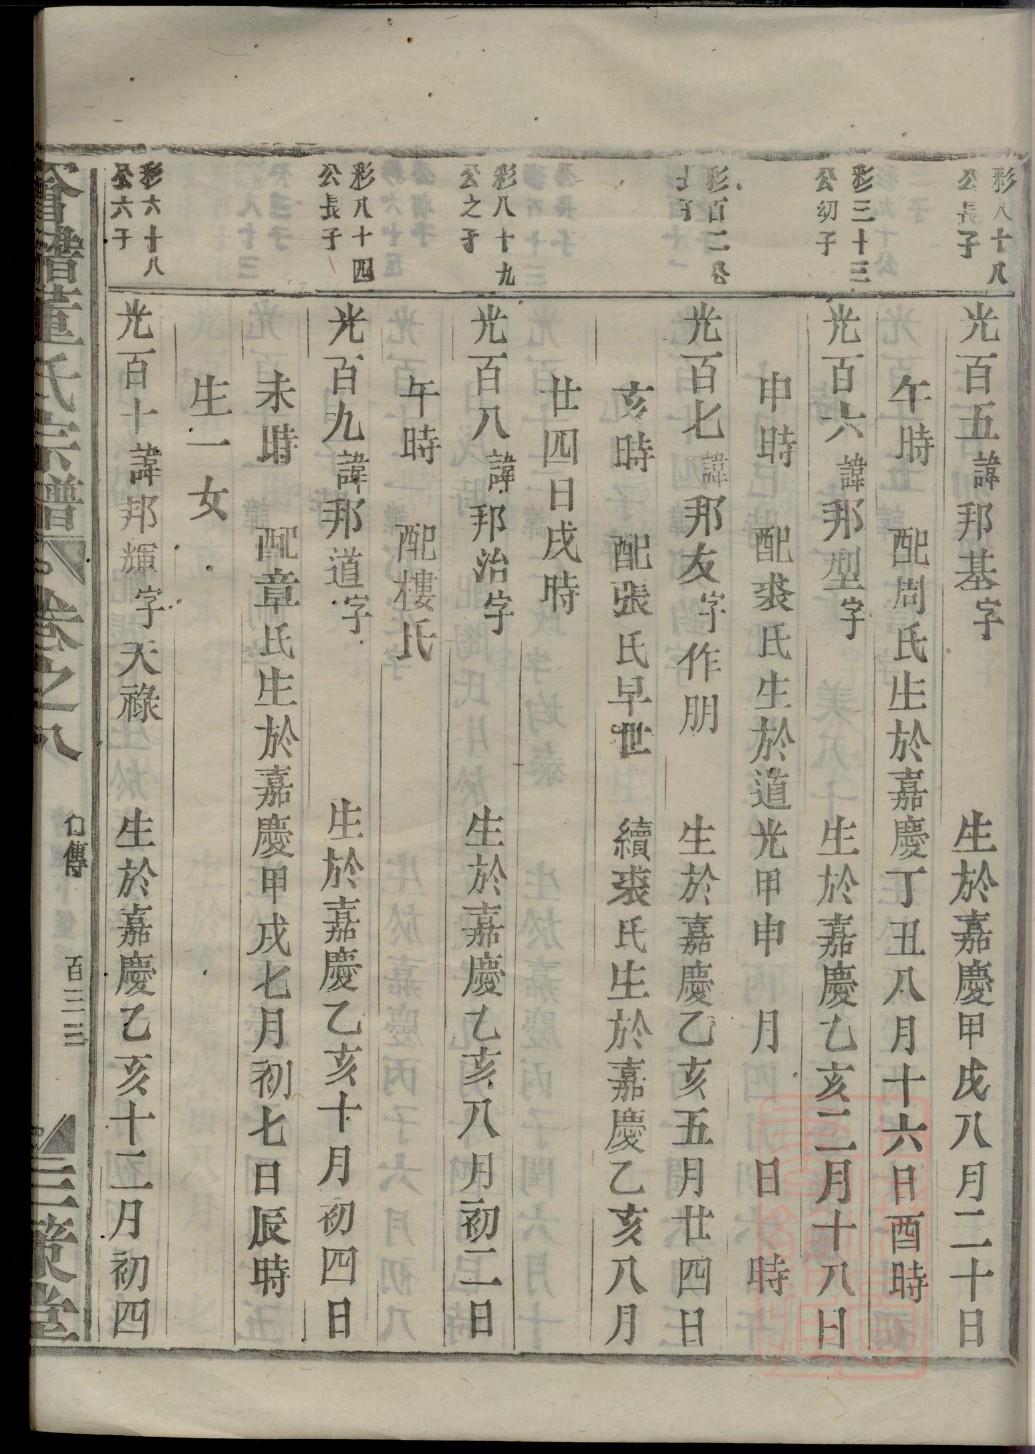 彩八十八
公長子
光百五諱邦基字 生於嘉慶甲戌八月二十日
午時 配周氏生於嘉慶丁丑八月十六日酉時
彩三十三
公幼子
光百六諱邦型字 生於嘉慶乙亥二月十八日
申時 配裘氏生於道光甲申 月 日 時
彩百二公
子
光百七諱邦友字作朋 生於嘉慶乙亥五月廿四日
亥時 配張氏早世 續裘氏生於嘉慶乙亥八月
廿四日戌時
彩八十九
公之子
光百八諱邦治字 生於嘉慶乙亥八月初二日
午時 配樓氏
彩八十四
公長子
光百九諱邦道字 生於嘉慶乙亥十月初四日
未時 配章氏生於嘉慶甲戌七月初七日辰時
生一女
彩六十八
公六子
光百十諱邦輝字天祿 生於嘉慶乙亥十二月初四
董氏宗譜 卷之八 傳 百三三 三策堂